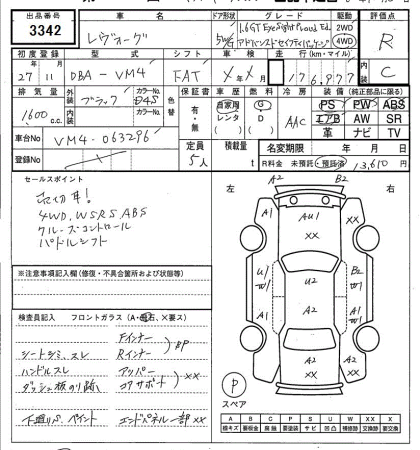 出品番号 車名 ドア形状 グレード 駆動 評価点
3342 レヴォーグ 5W 1.6GT EyeSight Proud Ed. 2WD 4WD R
アドバンスドセイフティパッケージ
初度登録 型式 シフト 車検 走行(km・マイル) 内装
27年11月 DBA-VM4 FAT X年X月 176,977 C
排気量 外装 ブラック カラーNo. D4S 色替 保証書 車歴 燃料 冷房 装備(純正部品に限る)
1600 c.c. 内装 カラーNo. 有・無 自家用 G AAC PS PW ABS
レンタ D エアB AW SR
車台No VM4-063296 革 ナビ TV
定員 5人 積載量 t 名変期限 年 月 日
登録No R料金 未預託・預託済 13,610
セールスポイント
売切車!
4WD.WSRS.ABS
クルーズコントロール
パドルシフト
左 A2 B2 右
A1 AU1 XX A1
XX
U1 W1 U2 B2 W1
A2
A1 A2 XX
A2 A2
※注意事項記入欄(修復・不具合箇所および状態等)
検査員記入 フロントガラス(A・飛石、X要ス)
シートシミ、スレ
ハンドルスレ
ダッシュ板のり跡
下廻りサビ、ペイント
Fインナー
Rインナー BP
アッパー
コアサポート XX
エンドパネル一部XX
P
スペア
A B C P S U W X XX
線キズ 要板金 腐蝕 要塗装 サビ 凹凸 補修跡 要交換